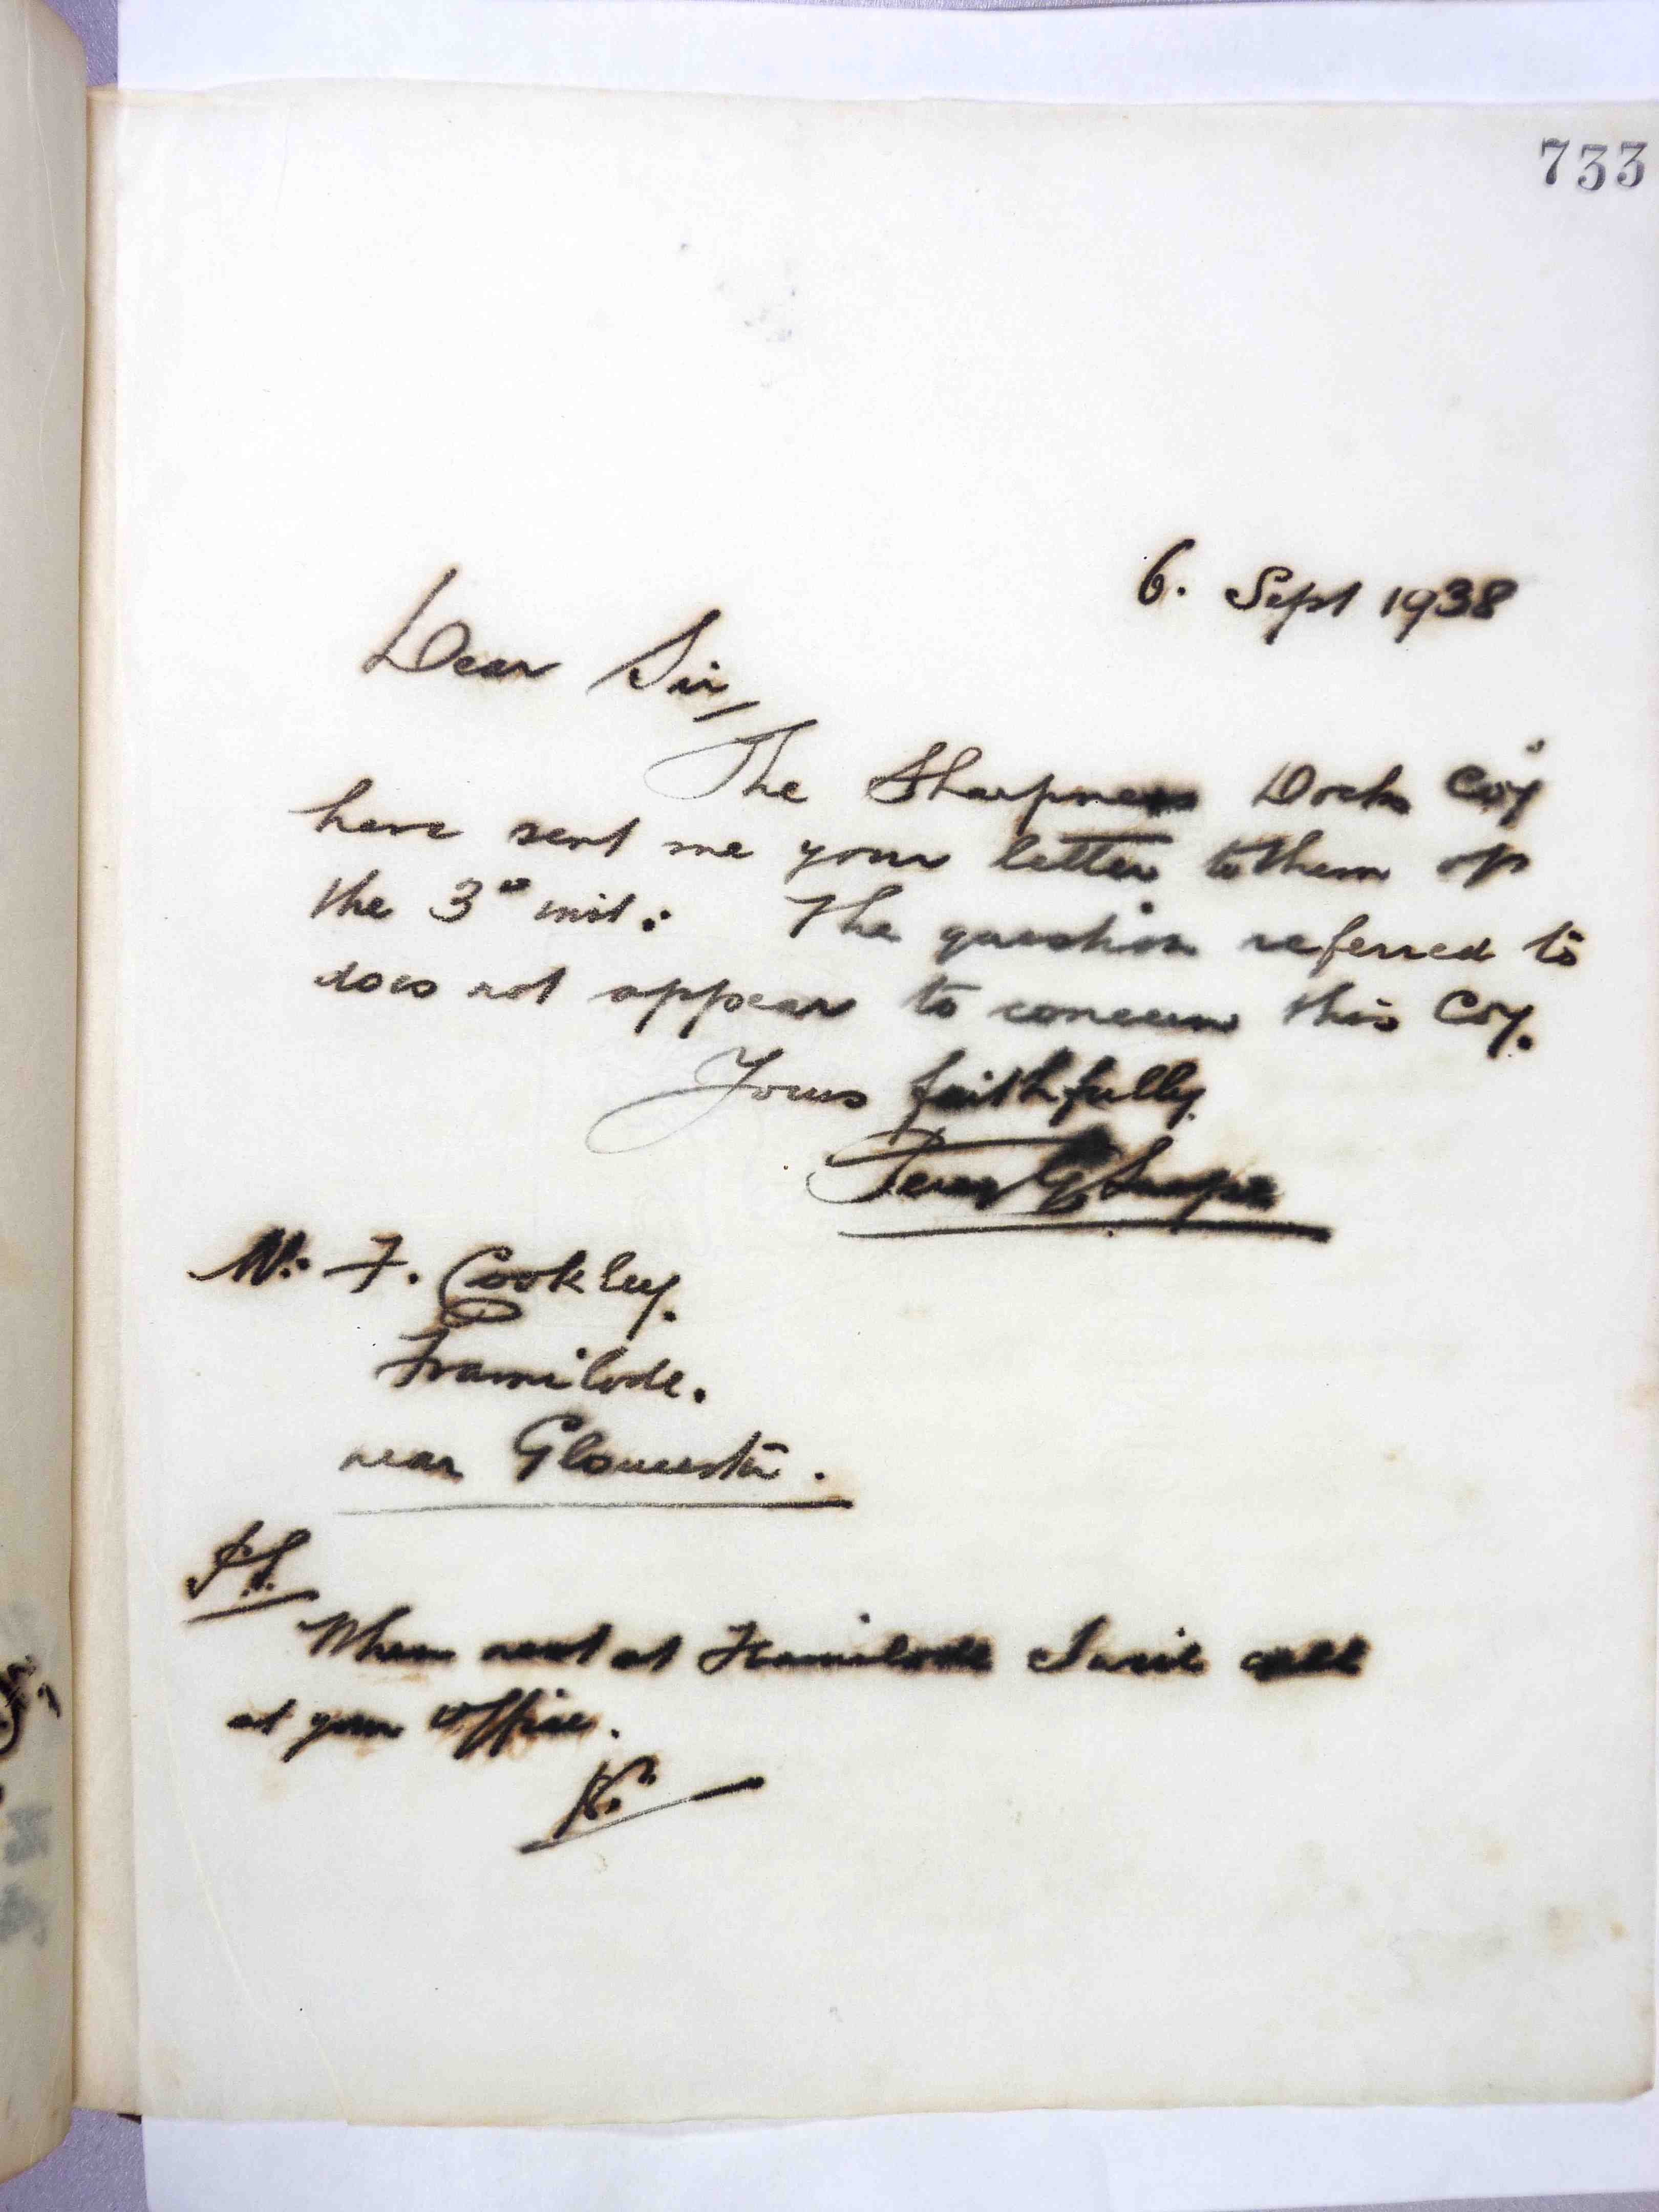 733
6. Sept 1938
Dear Sir,
The Sharpness Docks Coy
have sent me your letter to them of
the 3rd inst: The question referred to
does not appear to concern this Coy.
Yours faithfully
Mr. F. Cookley.
Framilode.
near Gloucester.
P.S.
When next at Framilode I will call
at your office.